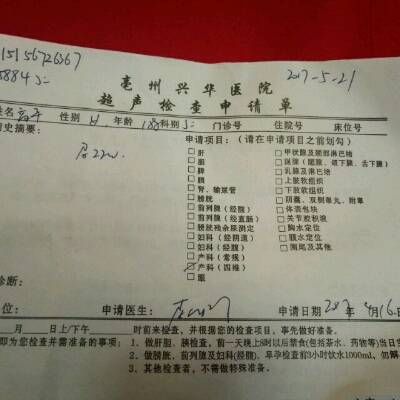 15156726367
亳州兴华医院
2017-5-21
超声检查申请单
姓名 性别 年龄 科别 门诊号 住院号 床位号
病史摘要: 申请项目:(请在申请项目之前划勾)
□肝 □甲状腺及颈部淋巴结
□胆
□脾 □乳腺及淋巴结
□胰 □上肢软组织
□肾、输尿管 □下肢软组织
□膀胱 □阴囊、双侧睾丸、附睾
□前列腺(经腹) □体表包块
□前列腺(经直肠) □关节腔积液
□膀胱残余尿测定 □胸水定位
□妇科(经阴道) □腹水定位
□妇科(经腹) □阑尾及其他
□产科(常规)
□产科(四维)
诊断:
位: 申请医生: 申请日期
月 日上/下午 时前来检查,并根据您的检查项目,事先做好准备。
即为您检查并需准备的事项: 1、做肝胆、胰检查,前一天晚上8时以后禁食(包括茶水、药物等)当日
2、做膀胱、前列腺及妇科(经腹)、早孕检查前3小时饮水1000ml,勿
3、其他检查者,不需做特殊准备。